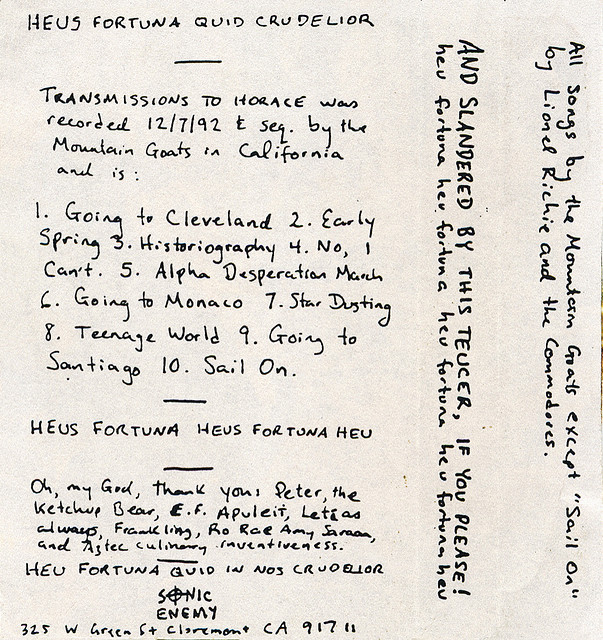 HEUS FORTUNA QUID CRUDELIOR
TRANSMISSIONS TO HORACE was
recorded 12/7/92 & seq. by the
Mountain Goats in California
and is:
1. Going to Cleveland 2. Early
Spring 3. Historiography 4. No, I
Can't. 5. Alpha Desperation March
6. Going to Monaco 7. Star Dusting
8. Teenage World 9. Going to
Santiago 10. Sail On.
HEUS FORTUNA HEUS FORTUNA HEU
Oh, my God, thank you: Peter, the
Ketchup Bear, E.F. Apuleit, Let:as
always, Frankling, Ro Rae Amy
and Aztec culinary inventiveness.
HEU FORTUNA QUID IN NOS CRUDELIOR
SONIC
ENEMY
325 W Green St Claremont CA 91711
AND SLANDERED BY THIS TEUCER, IF YOU PLEASE!
heu fortuna heu fortuna heu fortuna heu fortuna heu
All songs by the Mountain Goats except "Sail On"
by Lionel Richie and the Commodores.